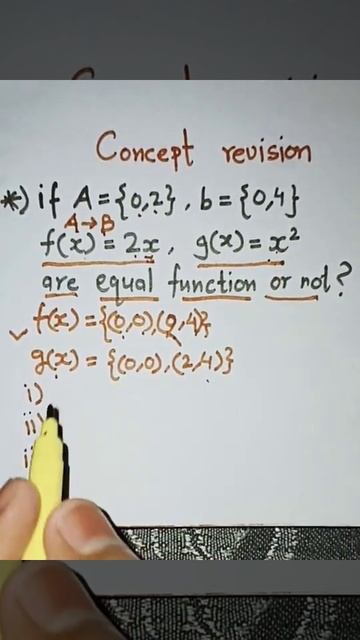 Concept revision
*) if A = {0,2} , b = {0,4}
A→B
f(x) = 2x , g(x) = x²
are equal function or not?
✓ f(x) = {(0,0),(2,4)}
g(x) = {(0,0),(2,4)}
i)
ii)